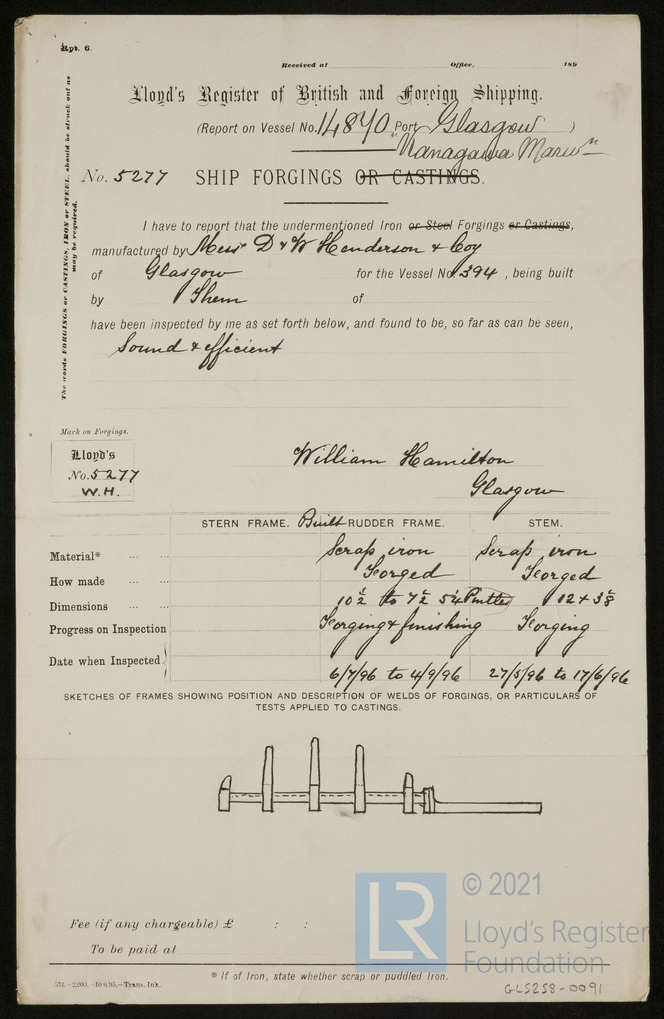 Rpt. 6.
Received at Office, 189
Lloyd's Register of British and Foreign Shipping.
(Report on Vessel No. 14870 Port Glasgow )
"Kanagawa Maru"
No. 5277 SHIP FORGINGS OR CASTINGS.
The words FORGINGS or CASTINGS, IRON or STEEL, should be struck out as
may be required.
I have to report that the undermentioned Iron or Steel Forgings or Castings,
manufactured by Messrs D & W Henderson & Coy
of Glasgow for the Vessel No. 394, being built
by Them of
have been inspected by me as set forth below, and found to be, so far as can be seen,
Sound & efficient
Mark on Forgings.
Lloyd's
No. 5277
W.H.
William Hamilton
Glasgow
STERN FRAME. Built RUDDER FRAME. STEM.
Material* ... ... Scrap iron Scrap iron
How made ... ... Forged Forged
Dimensions ... ... 10½ to 7½ 5¼ Pintles 12 x 3⅜
Progress on Inspection Forging & finishing Forging
Date when Inspected 6/7/96 to 4/9/96 27/5/96 to 17/6/96
SKETCHES OF FRAMES SHOWING POSITION AND DESCRIPTION OF WELDS OF FORGINGS, OR PARTICULARS OF
TESTS APPLIED TO CASTINGS.
Fee (if any chargeable) £ : :
To be paid at
* If of Iron, state whether scrap or puddled Iron.
LR
© 2021
Lloyd's Register
Foundation
GLS258-0091